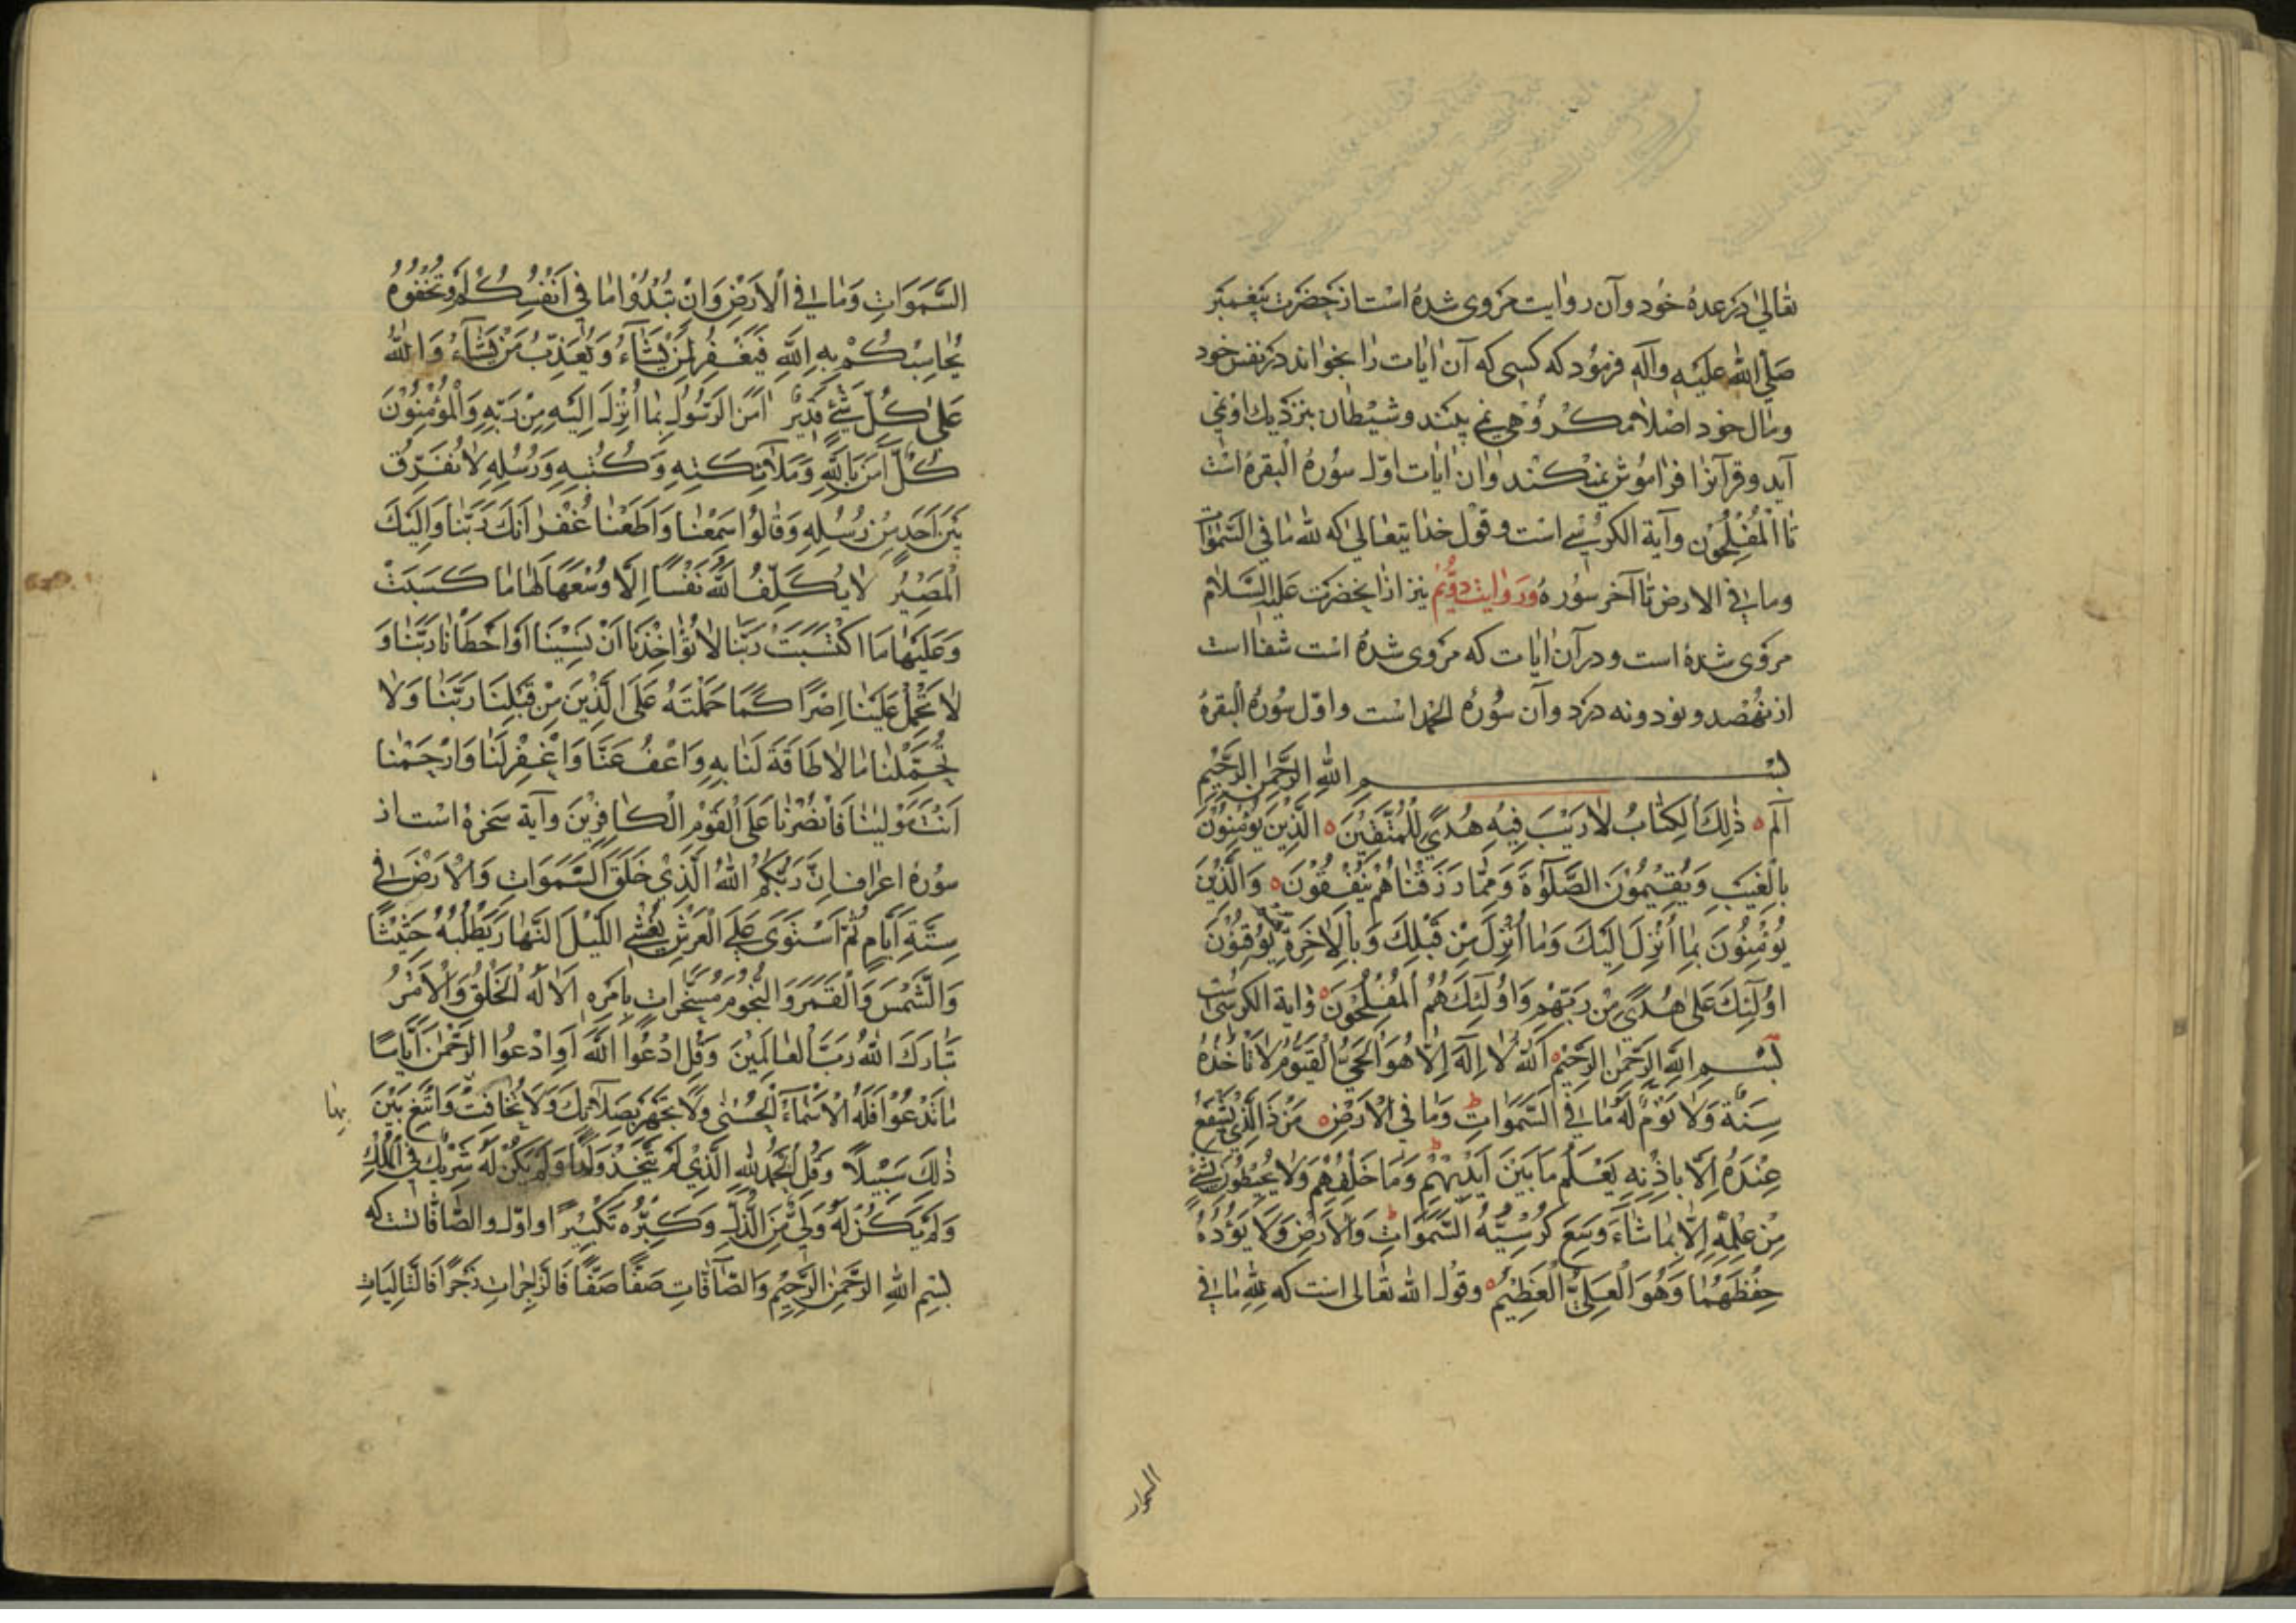 تعالی در عدهٔ خود و آن روایت مروی شده است از حضرت پیغمبر
صَلَّی الله عَلَیْهِ وآلَهِ فرمؤد که کسی که آن اٰیات را بخواند در نفس خود
ومال خود اصلا مکروهی نمی بیند و شیطان بنزدیك او نمی
آید و قرآنرا فراموش نمیکند و ان اٰیات اوّل سوُرهٔ البقره است
تا اَلْمُفْلِحُوْن وآیة الکرسی است و قول خدا یتعالی که لله ما فی السَّمٰوات
وما فی الارض تا آخر سوُره وروایت دوّم نیز از انحضرت عَلَیه السَّلام
مروی شدهٔ است و در آن اٰیات که مروی شدهٔ است شفا است
از نهصد و نود و نه درد و آن سوُره الحمد است و اوّل سوُره البقره
بسم الله الرَّحْمٰنِ الرَّحِیْمِ
آلم ذٰلِكَ الْكِتٰابُ لاٰرَیْبَ فِیْهِ هُدیً لِلْمُتَّقِیْنَ الَّذِیْنَ یُؤْمِنُوْنَ
بِالْغَیْبِ وَیُقِیْمُوْنَ الصَّلٰوةَ وَمِمّٰا رَزَقْنٰاهُمْ یُنْفِقُوْنَ وَالَّذِیْنَ
یُؤْمِنُوْنَ بِمٰا اُنْزِلَ اِلَیْكَ وَمٰا اُنْزِلَ مِنْ قَبْلِكَ وَبِالْاٰخِرَةِ هُمْ یُوْقِنُوْنَ
اُولٰٓئِكَ عَلیٰ هُدیً مِنْ رَبِّهِمْ وَاُولٰٓئِكَ هُمُ الْمُفْلِحُوْنَ وایة الکرسی است
بِسْمِ اللهِ الرَّحْمٰنِ الرَّحِیْمِ اَللهُ لاٰ اِلٰهَ اِلاّٰ هُوَ الْحَیُّ الْقَیُّوْمُ لاٰ تَأْخُذُهُ
سِنَةٌ وَلاٰ نَوْمٌ لَهُ مٰا فِی السَّمَوٰاتِ وَمٰا فِی الْاَرْضِ مَنْ ذَالَّذِیْ یَشْفَعُ
عِنْدَهُ اِلّاٰ بِاِذْنِهِ یَعْلَمُ مَا بَیْنَ اَیْدِیْهِمْ وَمَا خَلْفَهُمْ وَلاٰ یُحِیْطُوْنَ بِشَیْءٍ
مِنْ عِلْمِهِ اِلّاٰ بِمٰا شٰآءَ وَسِعَ كُرْسِیُّهُ السَّمَوٰاتِ وَالْاَرْضَ وَلاٰ یَؤُدُهُ
حِفْظُهُمٰا وَهُوَ الْعَلِیُّ الْعَظِیْمُ و قول الله تعالی است که لِلهِ مٰا فی
السموات
السَّمَوَاتِ وَمٰا فی الْاَرْضِ وَاِنْ تُبْدُوْا مٰا فِیْ اَنْفُسِكُمْ اَوْ تُخْفُوْهُ
یُحٰاسِبْكُمْ بِهِ اللهُ فَیَغْفِرُ لِمَنْ یَشٰآءُ وَیُعَذِّبُ مَنْ یَشٰآءُ وَاللهُ
عَلیٰ كُلِّ شَیْءٍ قَدِیْرٌ اٰمَنَ الرَّسُوْلُ بِمٰا اُنْزِلَ اِلَیْهِ مِنْ رَبِّهِ وَالْمُؤْمِنُوْنَ
كُلٌّ آمَنَ بِاللهِ وَمَلاٰئِكَتِهِ وَكُتُبِهِ وَرُسُلِهِ لاٰ نُفَرِّقُ
بَیْنَ اَحَدٍ مِنْ رُسُلِهِ وَقٰالُوْا سَمِعْنٰا وَاَطَعْنٰا غُفْرٰانَكَ رَبَّنٰا وَاِلَیْكَ
الْمَصِیْرُ لاٰ یُكَلِّفُ اللهُ نَفْسًا اِلَّا وُسْعَهَا لَهٰا مٰا كَسَبَتْ
وَعَلَیْهٰا مَا اكْتَسَبَتْ رَبَّنٰا لاٰ تُؤٰاخِذْنَا اَنْ نَسِیْنَا اَوْ اَخْطَأْنٰا رَبَّنٰا وَ
لاٰ تَحْمِلْ عَلَیْنٰا اِصْرًا كَمٰا حَمَلْتَهُ عَلَی الَّذِیْنَ مِنْ قَبْلِنٰا رَبَّنٰا وَلاٰ
تُحَمِّلْنٰا مٰا لاٰ طَاقَةَ لَنٰا بِهِ وَاعْفُ عَنَّا وَاغْفِرْ لَنٰا وَارْحَمْنٰا
اَنْتَ مَوْلیٰنٰا فَانْصُرْنٰا عَلَی الْقَوْمِ الْكٰافِرِیْنَ وآیة سخره است از
سوُره اعراف اِنَّ رَبَّكُمُ اللهُ الَّذِیْ خَلَقَ السَّمَوَاتِ وَالْاَرْضَ فی
سِتَّةِ اَیّٰامٍ ثُمَّ اسْتَوَی عَلَی الْعَرْشِ یُغْشِی اللَّیْلَ النَّهٰارَ یَطْلُبُهُ حَثِیْثًا
وَالشَّمْسَ وَالْقَمَرَ وَالنُّجُوْمَ مُسَخَّرَاتٍ بِاَمْرِهِ اَلاٰ لَهُ الْخَلْقُ وَالْاَمْرُ
تَبٰارَكَ اللهُ رَبُّ الْعٰالَمِیْنَ وَقُلِ ادْعُوا اللهَ اَوِ ادْعُوا الرَّحْمٰنَ اَیّٰاً
مٰا تَدْعُوْا فَلَهُ الْاَسْمٰاءُ الْحُسْنٰی وَلاٰ تَجْهَرْ بِصَلاٰتِكَ وَلاٰ تُخٰافِتْ وَابْتَغِ بَیْنَ
ذٰلِكَ سَبِیْلاً وَقُلِ الْحَمْدُ لِلهِ الَّذِیْ لَمْ یَتَّخِذْ وَلَدًا وَلَمْ یَكُنْ لَهُ شَرِیْكٌ فِی الْمُلْكِ
وَلَمْ یَكُنْ لَهُ وَلِیٌّ مِنَ الذُّلِّ وَكَبِّرْهُ تَكْبِیْرًا و اوّل والصّٰافّٰات است که
بِسْمِ اللهِ الرَّحْمٰنِ الرَّحِیْمِ وَالصّٰافّٰاتِ صَفًّا صَفًّا فَالزّٰجِرٰاتِ زَجْرًا فَالتّٰالِیٰاتِ